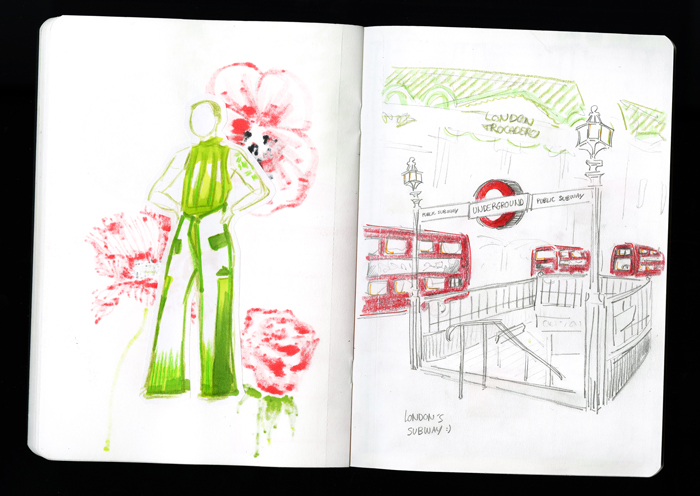 LONDON
TROCADERO
PUBLIC SUBWAY
UNDERGROUND
PUBLIC SUBWAY
LONDON'S
SUBWAY :)